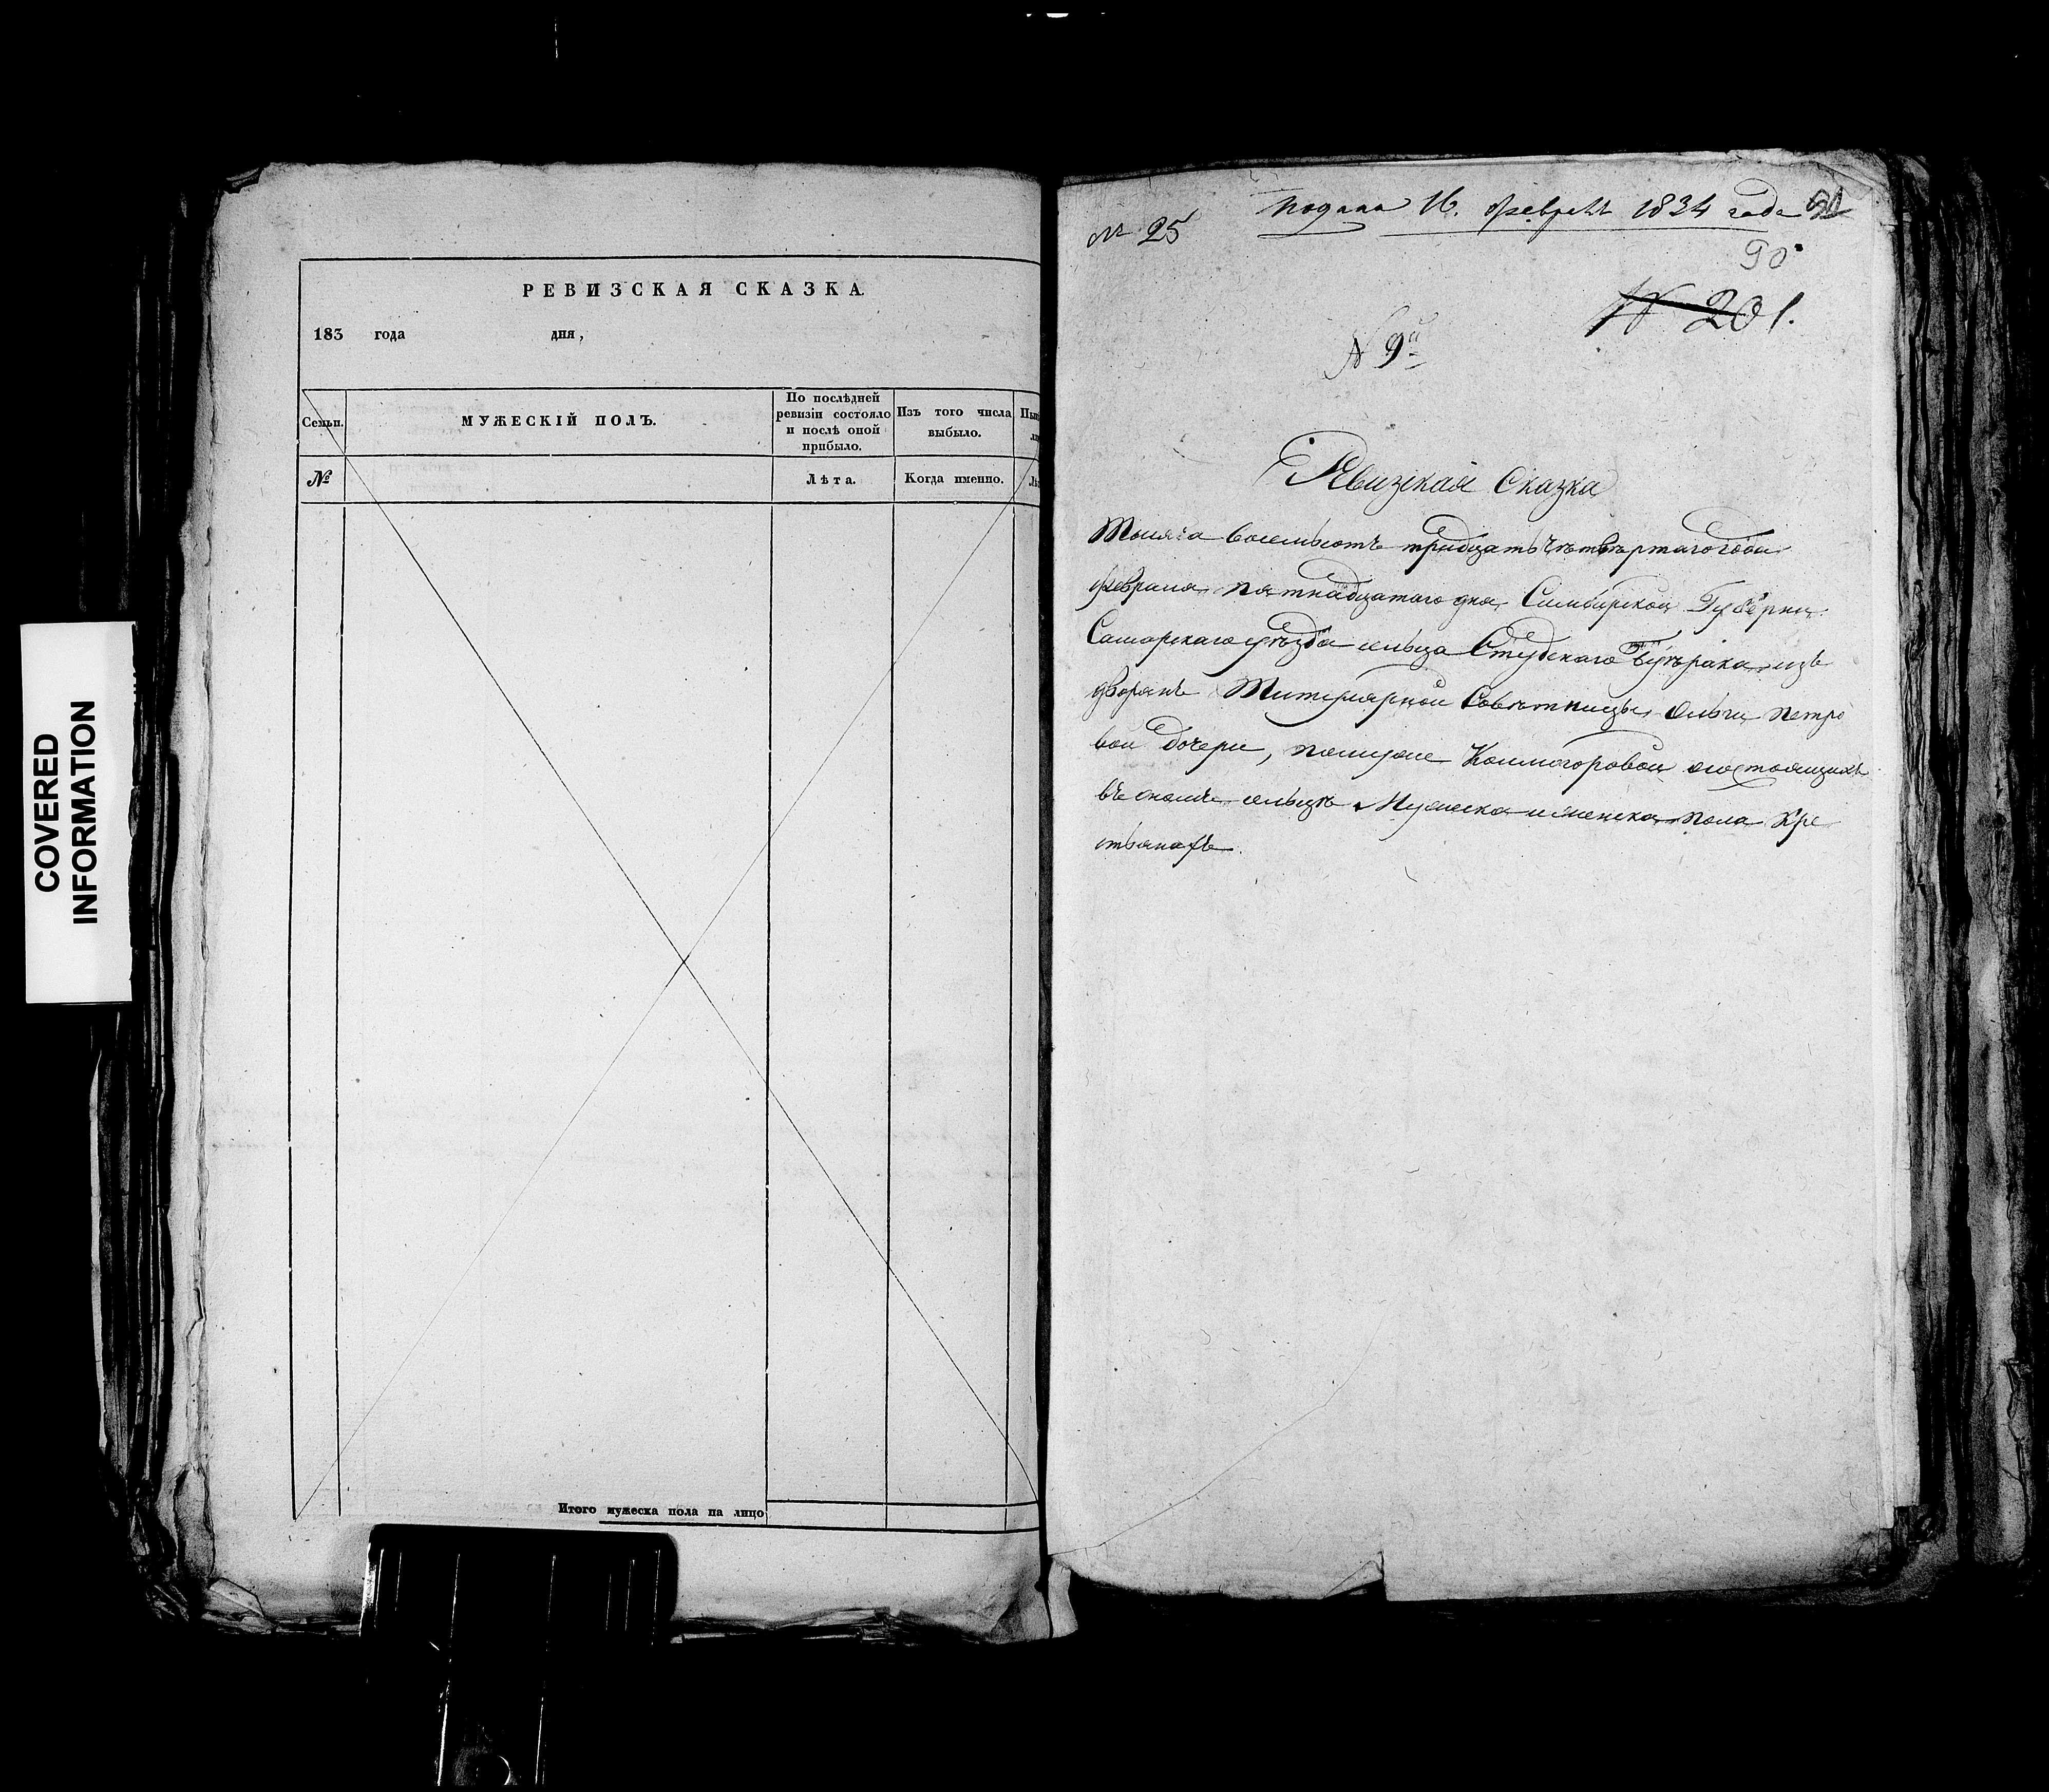 COVERED
INFORMATION
РЕВИЗСКАЯ СКАЗКА.
183 года дня,
Семьи.
МУЖЕСКІЙ ПОЛЪ.
По послѣдней
ревизіи состояло
и послѣ оной
прибыло.
Изъ того числа
выбыло.
№
Лѣта.
Когда именно.
Итого мужеска пола на лицо
Подана 16. февраля 1834 года
№ 25
90
№ 201.
№ 9й
Ревизская Сказка
Тысяча восемьсотъ тридцать четвертаго года
февраля пятнадцатаго дня Симбирской Губерніи
Самарскаго уѣзда сельца Студенаго Буерака изъ
дворянъ Титулярной Совѣтницы Ольги Петро
вой дочери, по мужѣ Колмогоровой о состоящихъ
въ ономъ сельцѣ мужеска и женска пола Кре
стьянахъ.